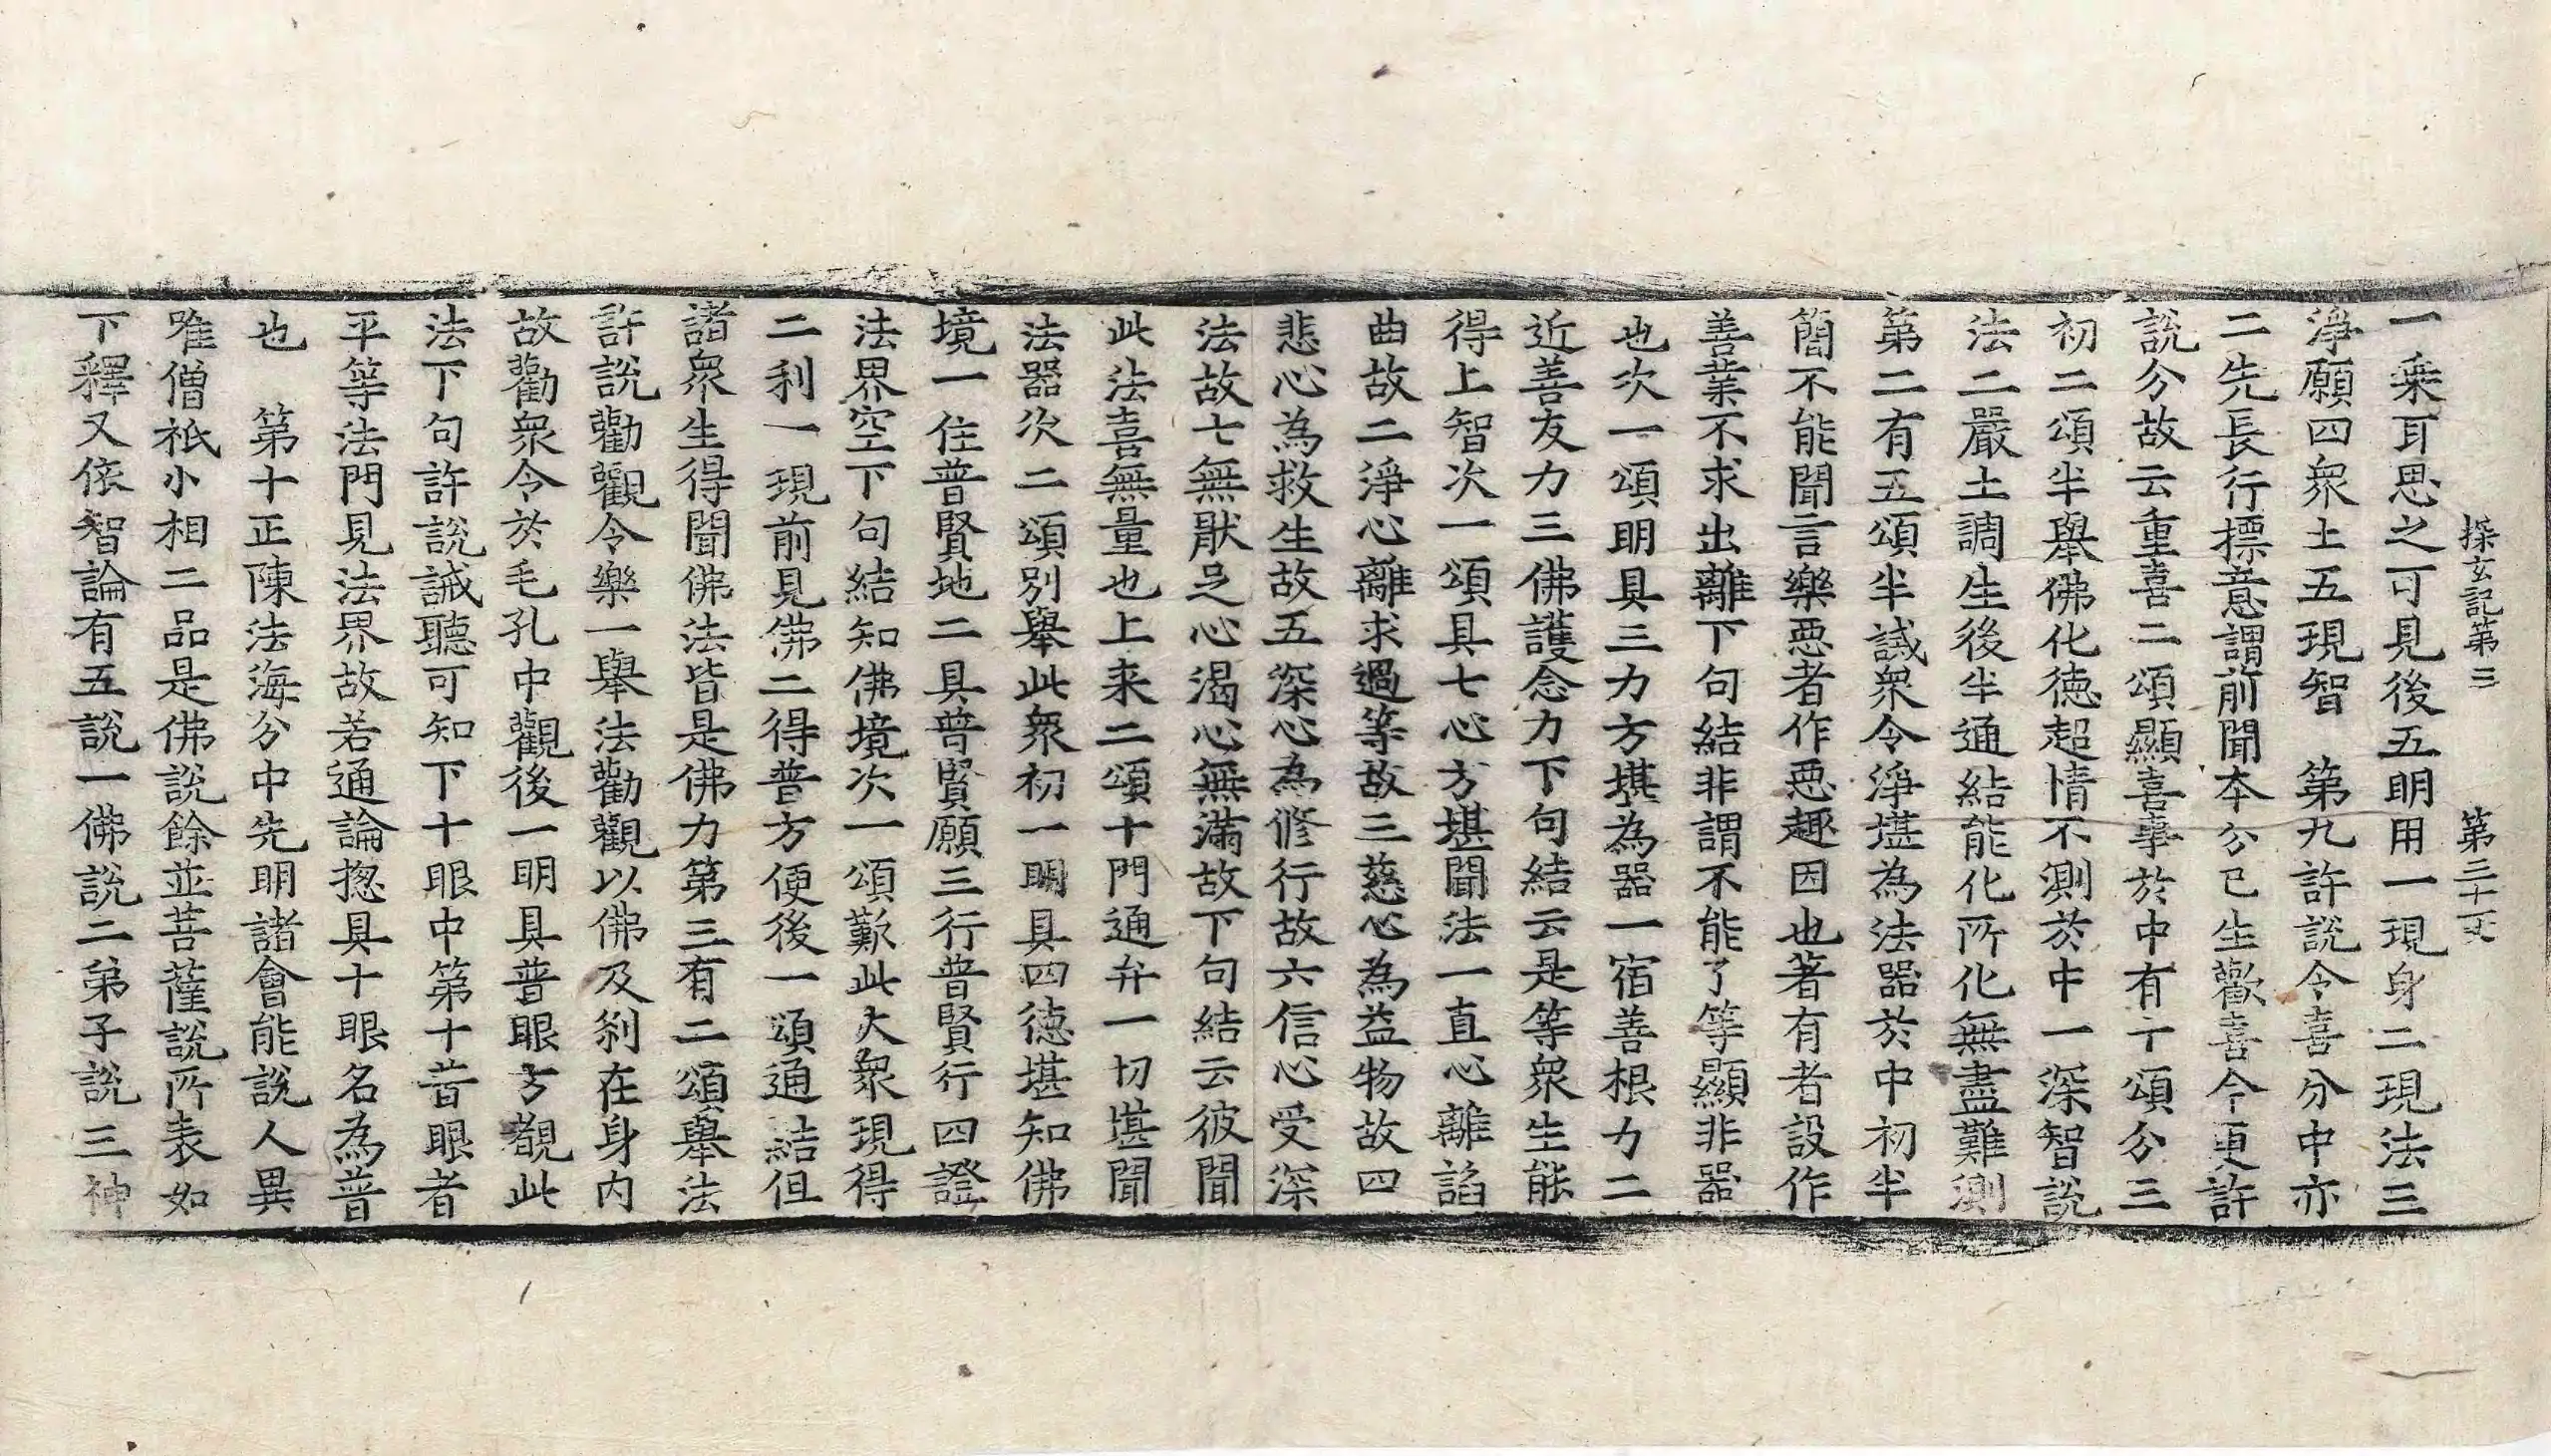 探玄記第三 第三十一丈
一乗耳思之可見後五明用一現身二現法三
淨願四衆土五現智 第九許說令喜分中亦
二先長行摽意謂前聞本分已生歡喜今更許
說分故云重喜二頌顯喜事於中有十頌分三
初二頌半舉佛化德超情不測於中一深智說
法二嚴土調生後半通結能化所化無盡難測
第二有五頌半誡衆令淨堪為法器於中初半
簡不能聞言樂惡者作惡趣因也著有者設作
善業不求出離下句結非謂不能了等顯非器
也次一頌明具三力方堪為器一宿善根力二
近善友力三佛護念力下句結云是等衆生能
得上智次一頌具七心方堪聞法一直心離諂
曲故二淨心離求過等故三慈心為益物故四
悲心為救生故五深心為修行故六信心受深
法故七無猒足心渴心無滿故下句結云彼聞
此法喜無量也上来二頌十門通弁一切堪聞
法器次二頌別舉此衆初一明具四德堪知佛
境一住普賢地二具普賢願三行普賢行四證
法界空下句結知佛境次一頌歎此大衆現得
二利一現前見佛二得普方便後一頌通結但
諸衆生得聞佛法皆是佛力第三有二頌舉法
許說勸觀令樂一舉法勸觀以佛及剎在身內
故勸衆令於毛孔中觀後一明具普眼方觀此
法下句許說誡聽可知下十眼中第十普眼者
平等法門見法界故若通論揔具十眼名為普
也 第十正陳法海分中先明諸會能說人異
唯僧祇小相二品是佛說餘並菩薩說所表如
下釋又依智論有五說一佛說二弟子說三神